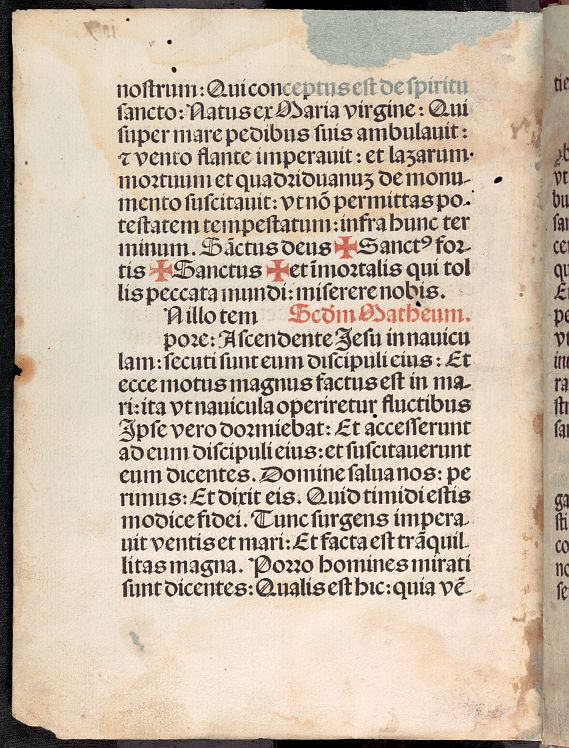 nostrum: Qui conceptus est de spiritu
sancto: Natus ex Maria virgine: Qui
super mare pedibus suis ambulauit:
⁊ vento flante imperauit: et lazarum
mortuum et quadriduanuꝫ de monu-
mento suscitauit: vt nō permittas po-
testatem tempestatum: infra hunc ter
minum. Sāctus deus ✠ Sanctꝰ for-
tis ✠ Sanctus ✠ et īmortalis qui tol
lis peccata mundi: miserere nobis.
N illo tem Scd̄m Matheum.
pore: Ascendente Jesu in nauicu
lam: secuti sunt eum discipuli eius: Et
ecce motus magnus factus est in ma-
ri: ita vt nauicula operiretur fluctibus
Ipse vero dormiebat: Et accesserunt
ad eum discipuli eius: et suscitauerunt
eum dicentes. Domine salua nos: pe
rimus: Et dixit eis. Quid timidi estis
modice fidei. Tunc surgens impera-
uit ventis et mari: Et facta est trāquil
litas magna. Porro homines mirati
sunt dicentes: Qualis est hic: quia vē-